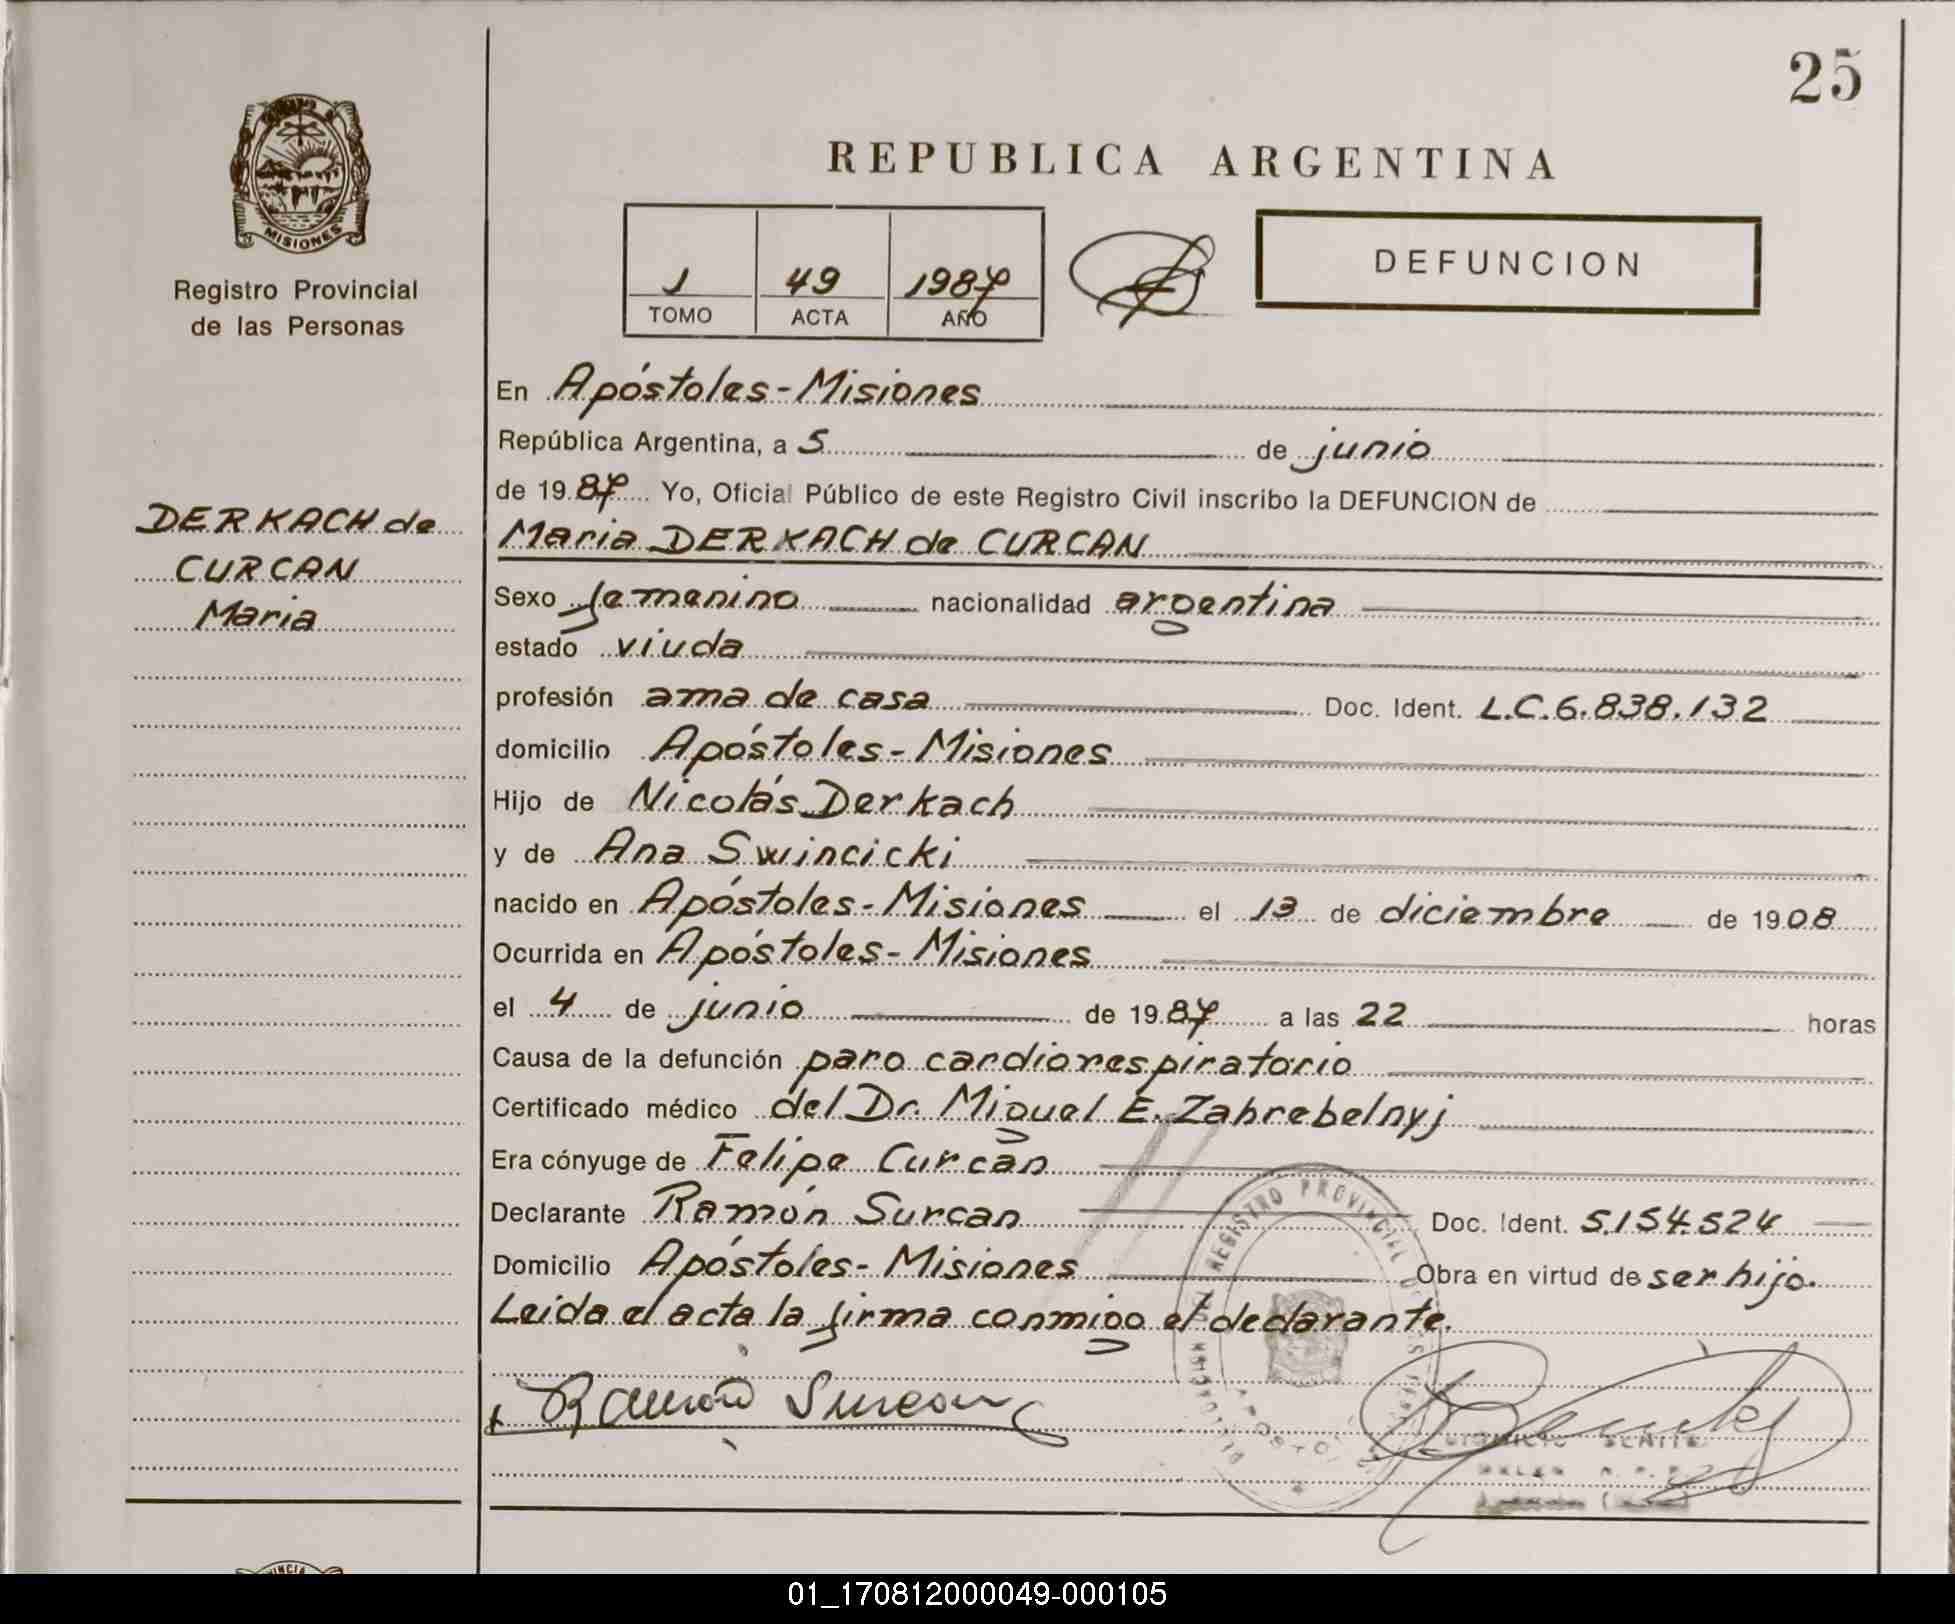 25
MISIONES
Registro Provincial
de las Personas
REPUBLICA ARGENTINA
1 49 1987
TOMO ACTA AÑO
DEFUNCION
DERKACH de
CURCAN
Maria
En Apóstoles-Misiones
República Argentina, a 5 de junio
de 1987 Yo, Oficial Público de este Registro Civil inscribo la DEFUNCION de
Maria DERKACH de CURCAN
Sexo femenino nacionalidad argentina
estado viuda
profesión ama de casa Doc. Ident. L.C.6.838.132
domicilio Apóstoles-Misiones
Hijo de Nicolás Derkach
y de Ana Swincicki
nacido en Apóstoles-Misiones el 13 de diciembre de 1908
Ocurrida en Apóstoles-Misiones
el 4 de junio de 1987 a las 22 horas
Causa de la defunción paro cardiorespiratorio
Certificado médico del Dr. Miguel E. Zahrebelnyj
Era cónyuge de Felipe Curcan
Declarante Ramón Surcan Doc. Ident. 5.154.524
Domicilio Apóstoles-Misiones Obra en virtud de ser hijo.
Leida el acta la firma conmigo el declarante.
Ramón Surcan
REGISTRO PROVINCIAL
01_170812000049-000105